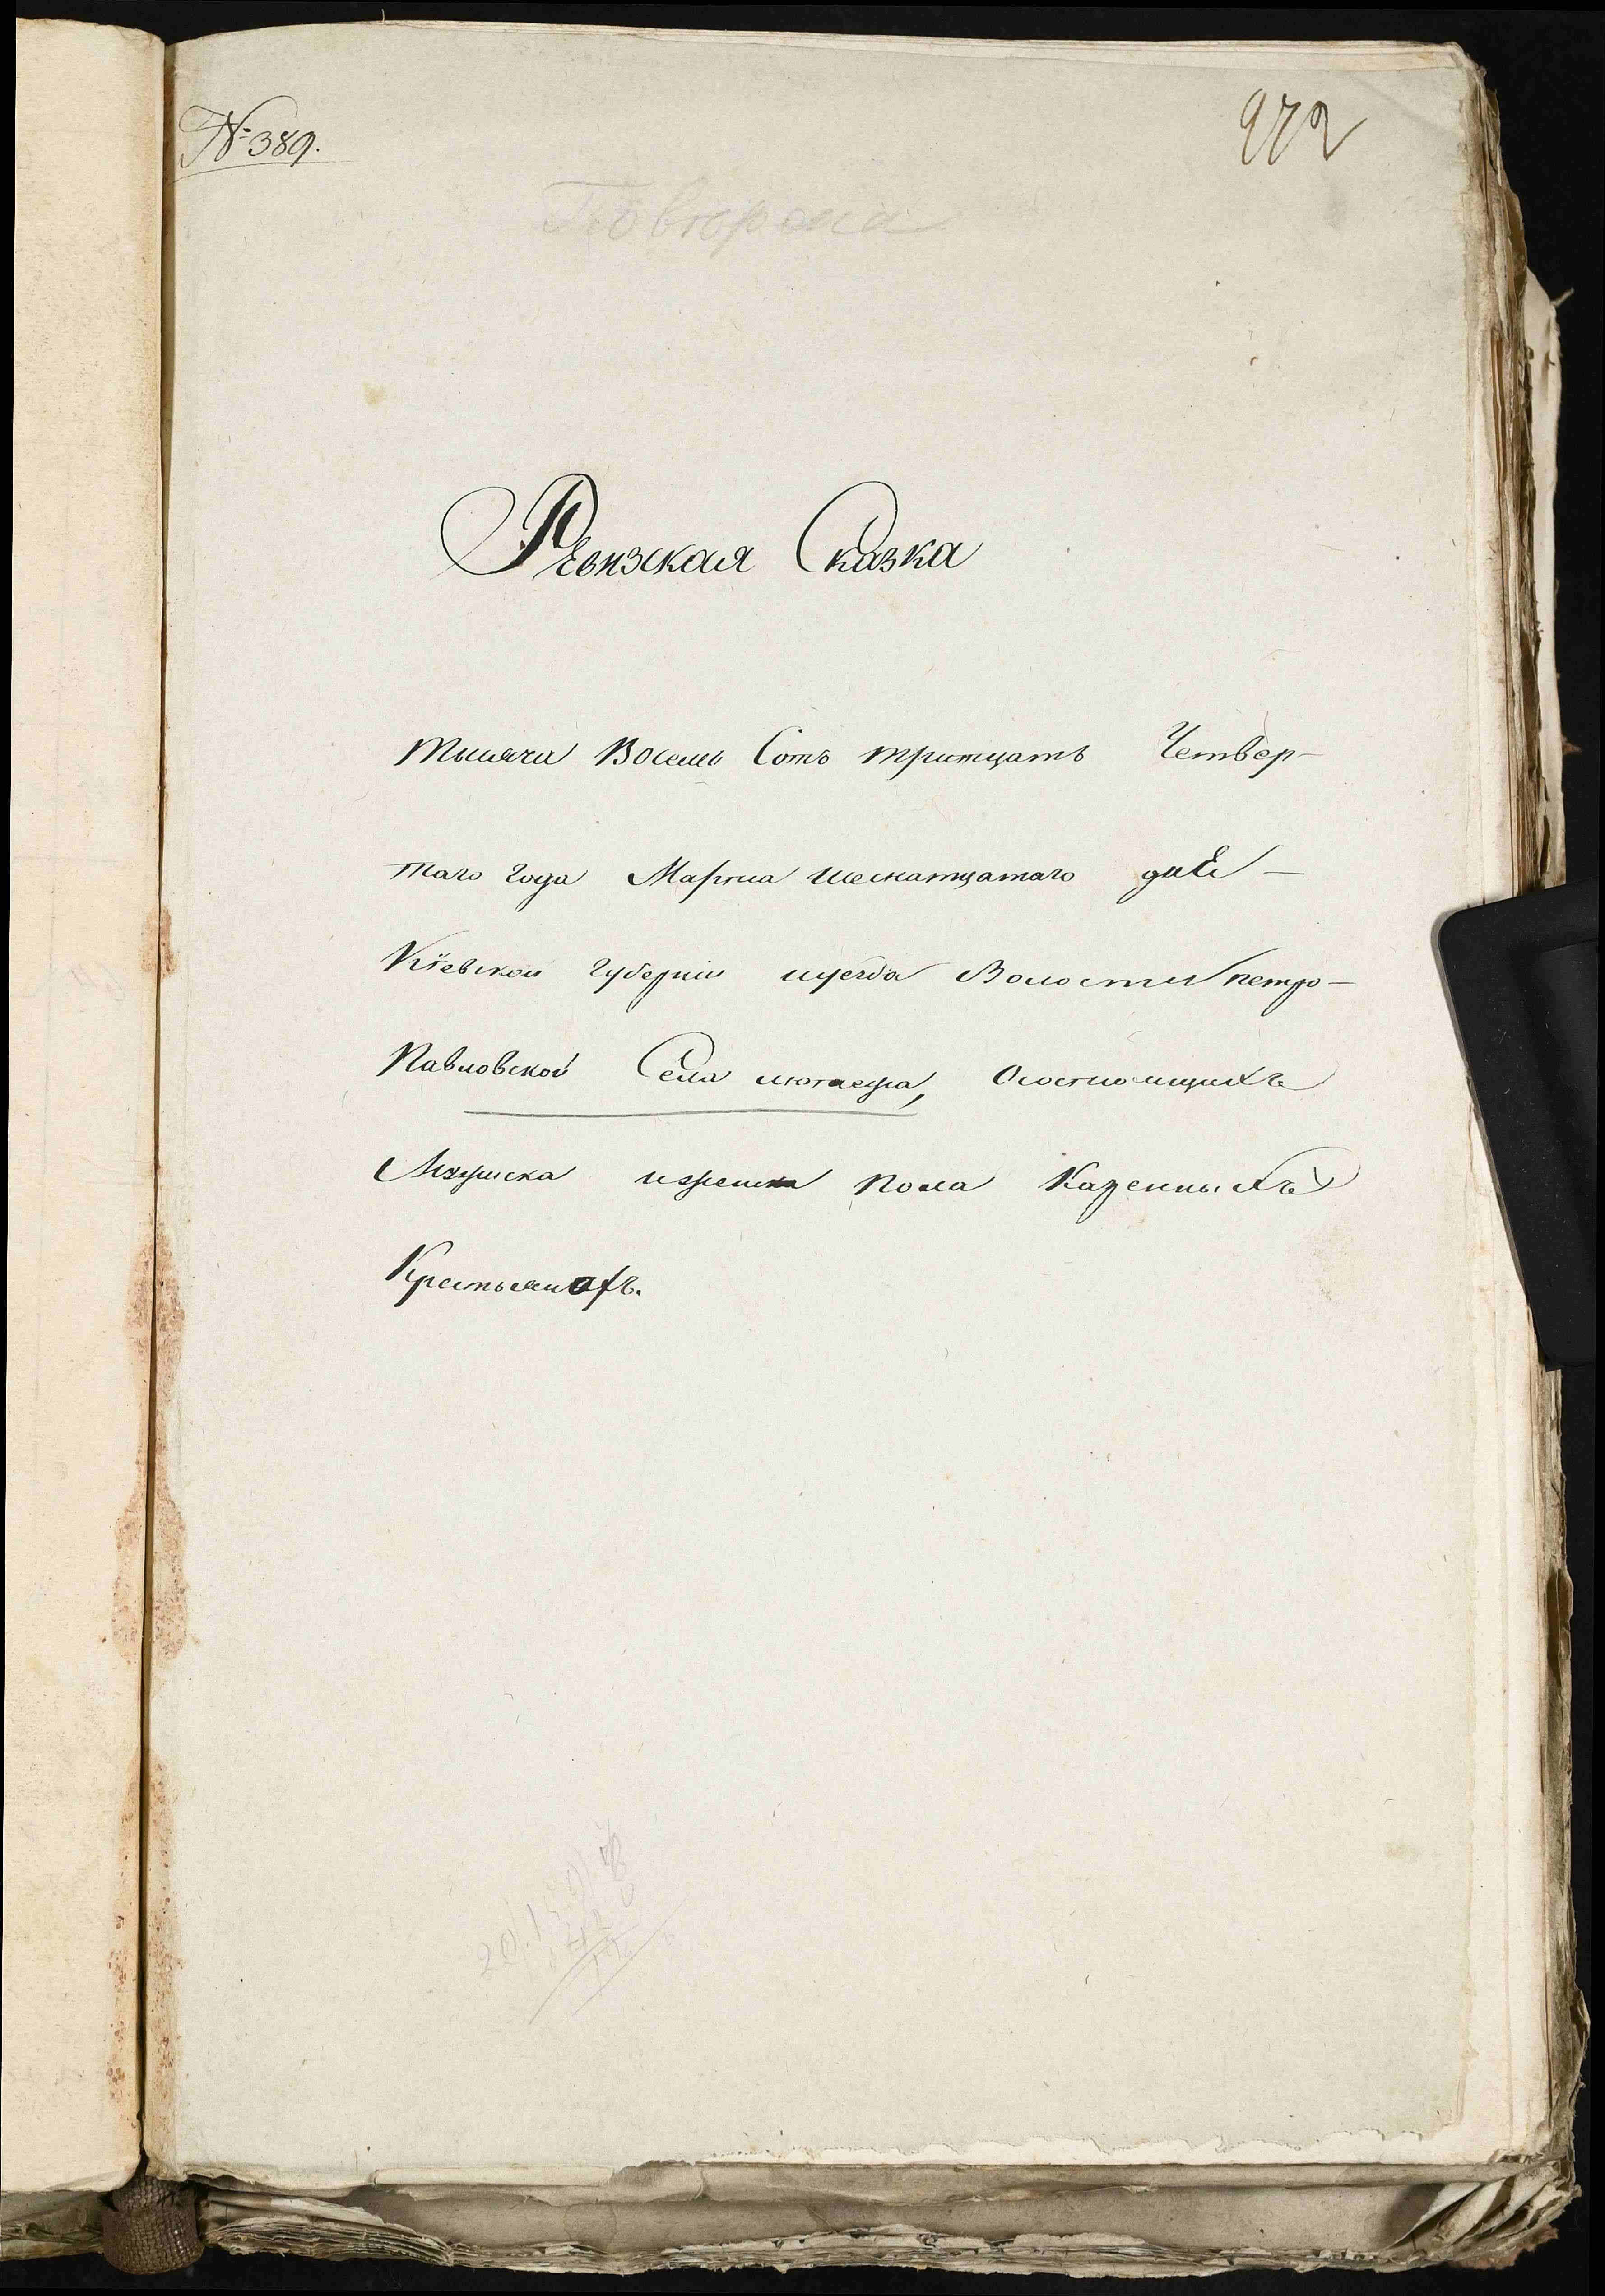 № 389.
972
Повторена
Ревизская Сказка
тысяча Восемь Сотъ тритцать Четвер-
таго года Марта шеснатцатаго дня -
Кіевской губерніи иуезда Волости петро-
Павловской Села лютежа, Осостоящихъ
Мужиска ижеиска пола Казенныхъ
Крестьянахъ.